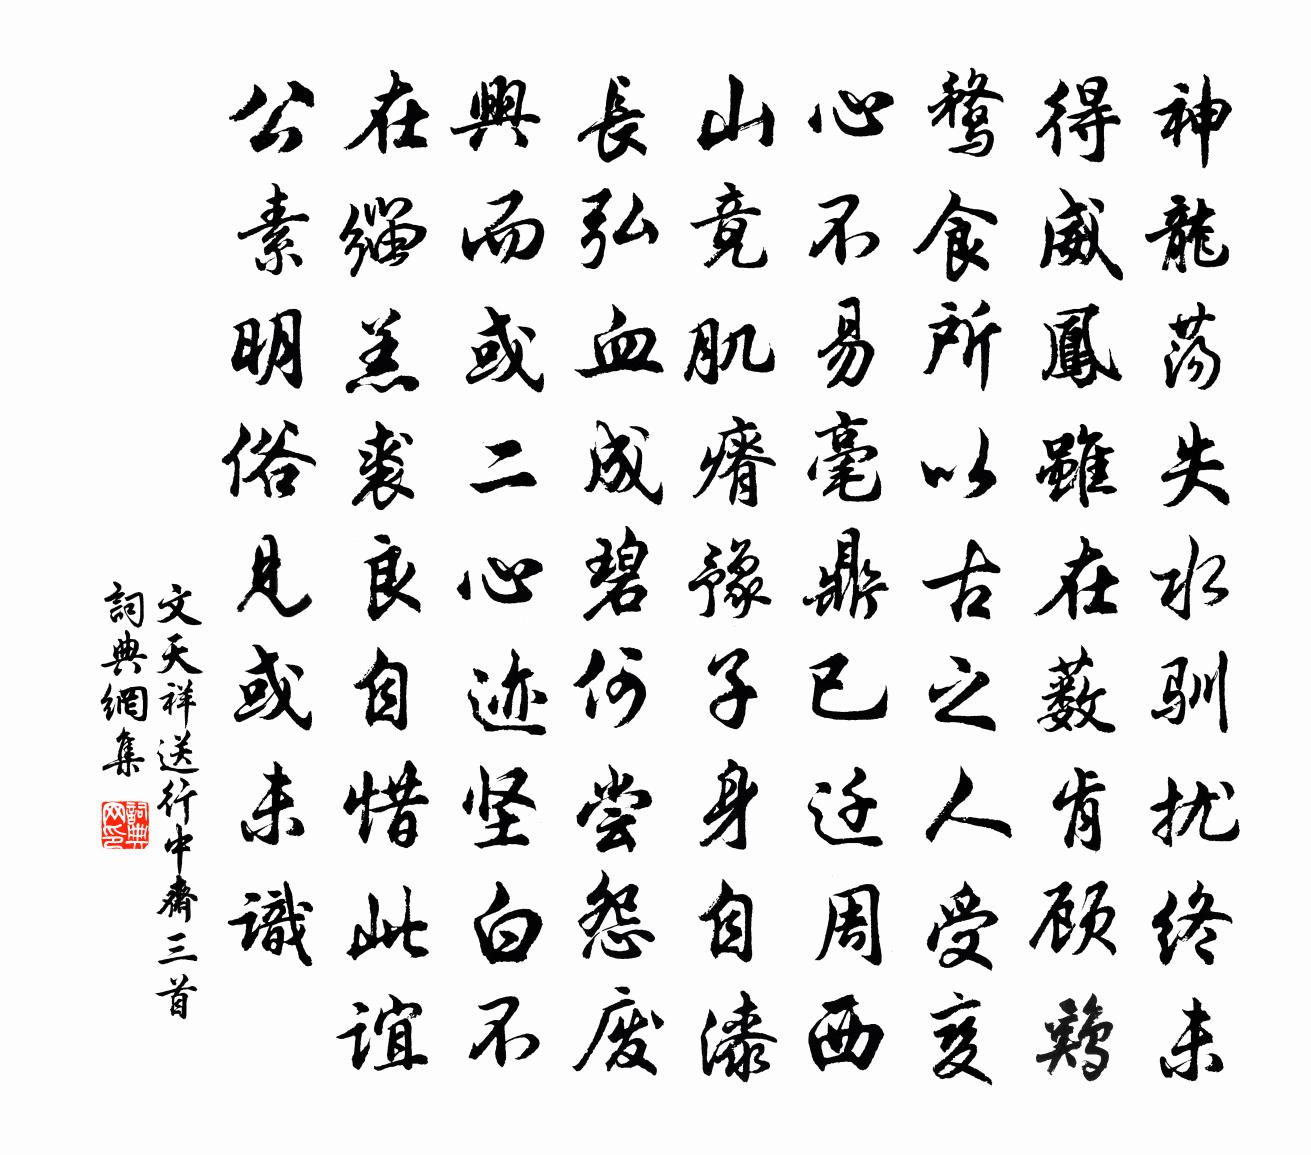 神龍蕩失水馴扰终未
得威鳳雖在薮肯顾鷄
鶩食所以古之人受变
心不易毫鼎已迁周西
山竟肌瘠豫子身自漆
長弘血成碧何尝怨废
興而或二心迹坚白不
在缁羔裘良自惜此谊
公素明俗見或未識
文天祥送行中齋三首
詞典網集
詞典网印